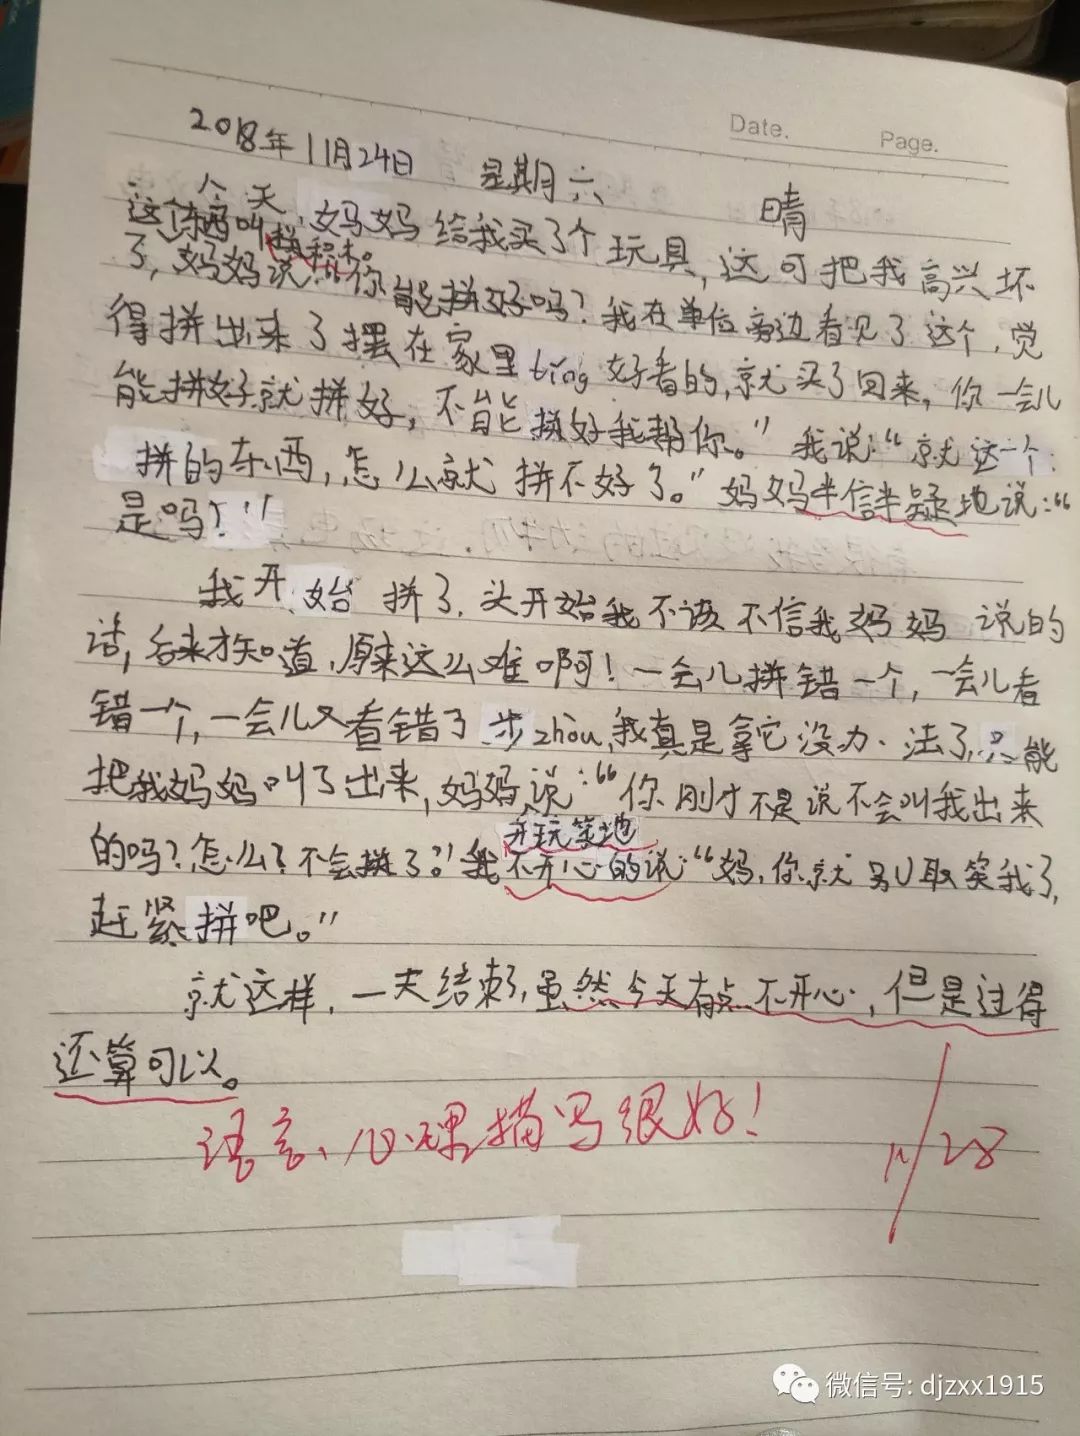 Date.
Page.
2018年11月24日 星期六 晴
今天,妈妈给我买了个玩具,这可把我高兴坏
这个东西叫拼积木。
了,妈妈说:“你能拼好吗?我在单位旁边看见了这个,觉
得拼出来了摆在家里ting好看的,就买了回来,你一会儿
能拼好就拼好,不能拼好我帮你。”我说:“就这一个
拼的东西,怎么就拼不好了。”妈妈半信半疑地说:“
是吗?”
我开始拼了,头开始我不该不信我妈妈说的
话,后来才知道,原来这么难啊!一会儿拼错一个,一会儿看
错一个,一会儿又看错了步zhòu,我真是拿它没办法了,只能
把我妈妈叫了出来,妈妈说:“你刚才不是说不会叫我出来
开玩笑地
的吗?怎么?不会拼了?”我不开心的说:“妈,你就别取笑我了,
赶紧拼吧。”
就这样,一天结束了,虽然今天有点不开心,但是过得
还算可以。
语言、心理描写很好!
11/28
微信号: djzxx1915